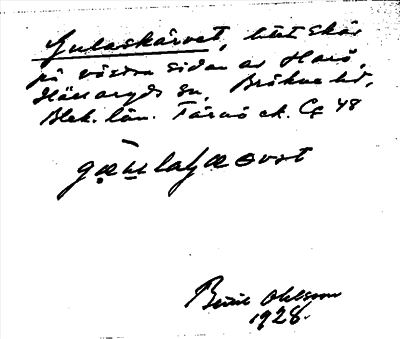 Gulaskärvet, litet skär
på västra sidan av Harö,
Hällaryds sn, Bräkne hd,
Blek. län. Tärnö ek. Cg 48
Bertil Ohlsson
1928.